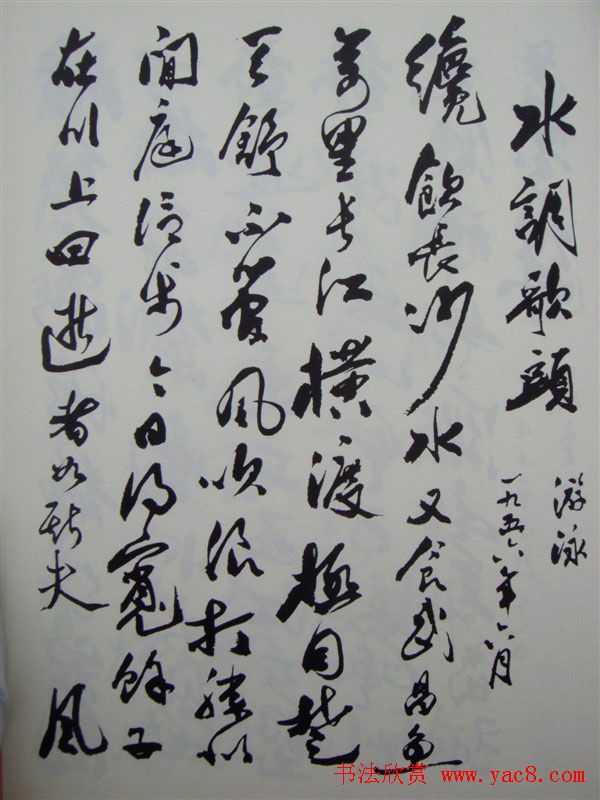 水調歌頭
游泳
一九五六年六月
纔飲長沙水又食武昌魚
萬里長江橫渡極目楚
天舒不管風吹浪打勝似
閒庭信步今日得寬餘子
在川上曰逝者如斯夫
風
书法欣赏 www.yac8.com